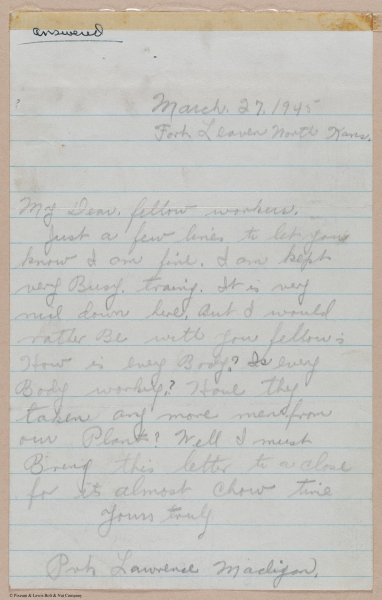 answered
?
March. 27, 1945
Fort Leaven North Kans.
My Dear. fellow workers.
Just a few lines to let you
know I am fine. I am kept
very Busy. traing. It is very
nice down here. But I would
rather Be with you fellows
How is every Body? Is every
Body working? Have they
taken any more men from
our Plant? Well I must
Bring this letter to a close
for its almost chow time
Yours truly
Lawrence Madigan.
© Pioneer & Lewis Bolt & Nut Company